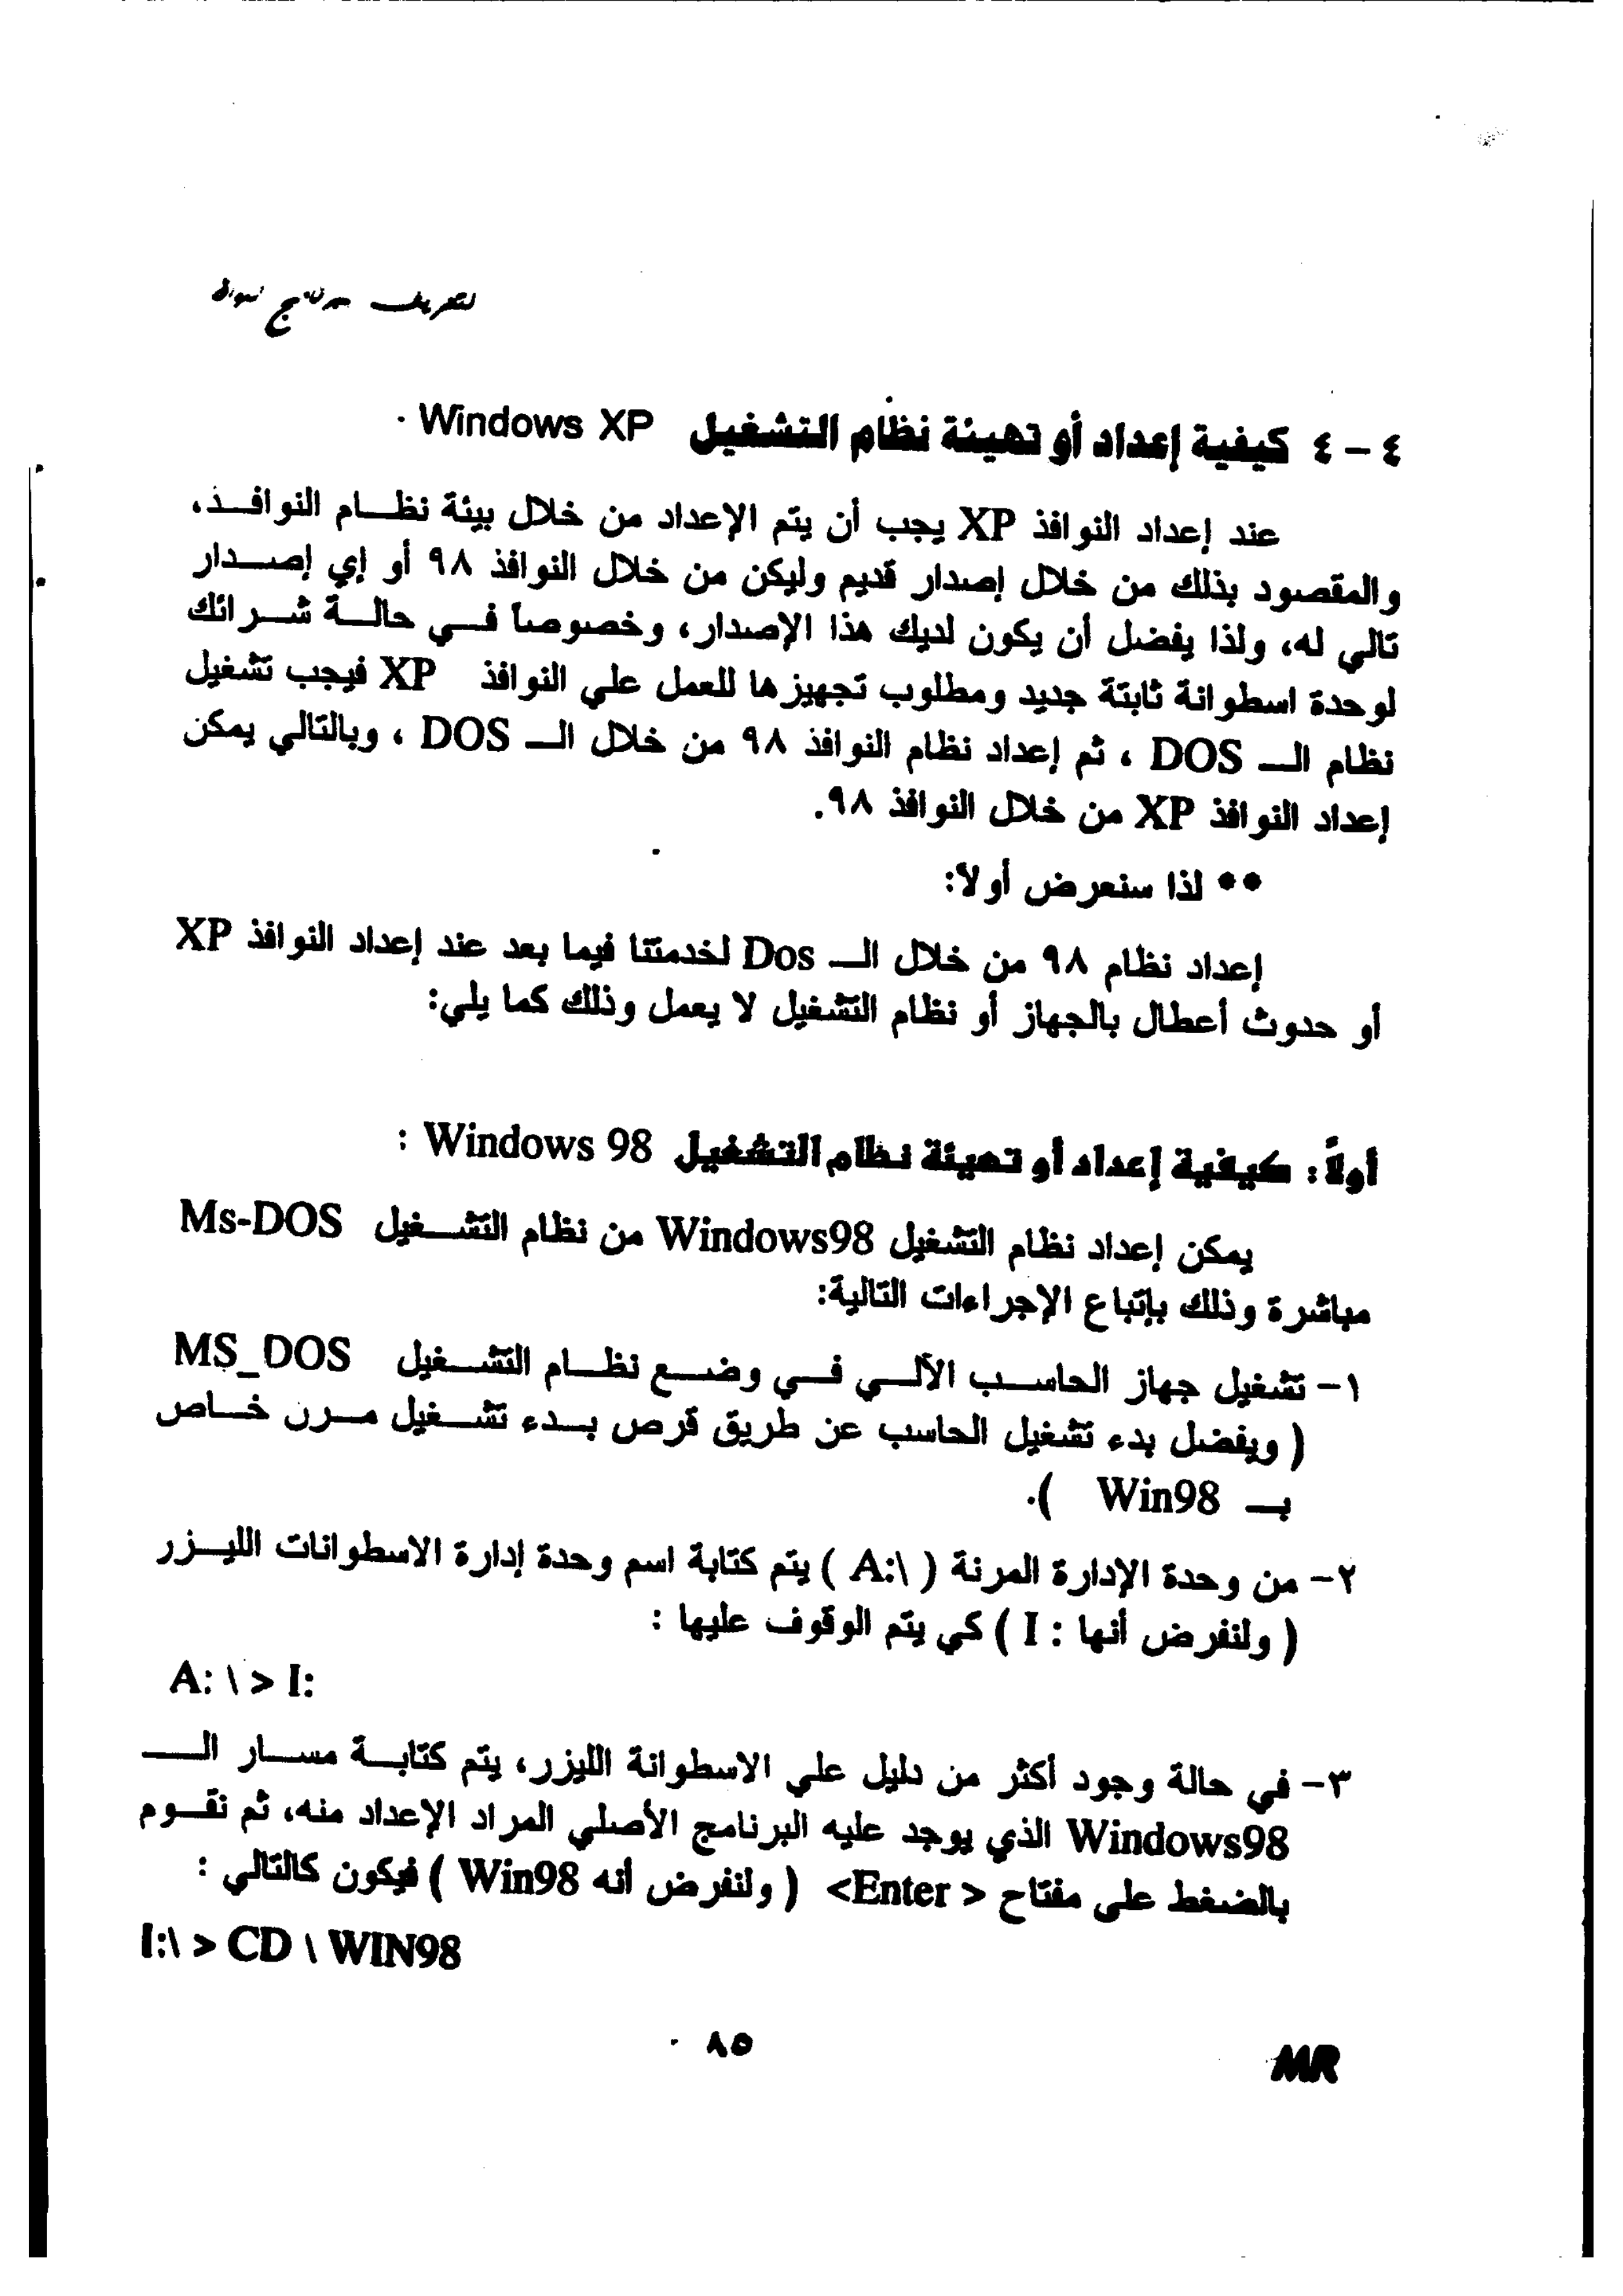 ٤ – ٤ كيفية إعداد أو تهيئة نظام التشغيل Windows XP .
عند إعداد النوافذ XP يجب أن يتم الإعداد من خلال بيئة نظام النوافذ،
والمقصود بذلك من خلال إصدار قديم وليكن من خلال النوافذ ٩٨ أو إي إصدار
تالي له، ولذا يفضل أن يكون لديك هذا الإصدار، وخصوصاً في حالة شرائك
لوحدة اسطوانة ثابتة جديد ومطلوب تجهيزها للعمل علي النوافذ XP فيجب تشغيل
نظام الـ DOS ، ثم إعداد نظام النوافذ ٩٨ من خلال الـ DOS ، وبالتالي يمكن
إعداد النوافذ XP من خلال النوافذ ٩٨.
** لذا سنعرض أولاً:
إعداد نظام ٩٨ من خلال الـ Dos لخدمتنا فيما بعد عند إعداد النوافذ XP
أو حدوث أعطال بالجهاز أو نظام التشغيل لا يعمل وذلك كما يلي:
أولاً: كيفية إعداد أو تهيئة نظام التشغيل Windows 98 :
يمكن إعداد نظام التشغيل Windows98 من نظام التشغيل Ms-DOS
مباشرة وذلك بإتباع الإجراءات التالية:
١- تشغيل جهاز الحاسب الآلي في وضع نظام التشغيل MS_DOS
( ويفضل بدء تشغيل الحاسب عن طريق قرص بدء تشغيل مرن خاص
بـ Win98 ).
٢- من وحدة الإدارة المرنة ( A:\ ) يتم كتابة اسم وحدة إدارة الاسطوانات الليزر
( ولنفرض أنها : I ) كي يتم الوقوف عليها :
A: \ > I:
٣- في حالة وجود أكثر من دليل علي الاسطوانة الليزر، يتم كتابة مسار الـ
Windows98 الذي يوجد عليه البرنامج الأصلي المراد الإعداد منه، ثم نقوم
بالضغط على مفتاح <Enter > ( ولنفرض أنه Win98 ) فيكون كالتالي :
I:\ > CD \ WIN98
٨٥
MR